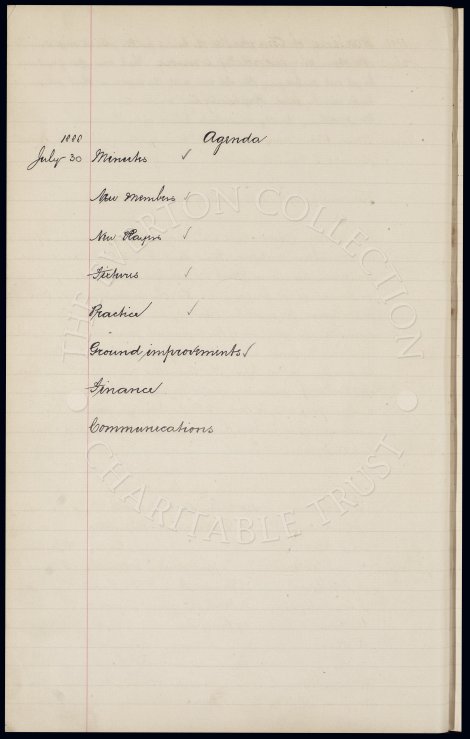 1888 Agenda
July 30 Minutes ✓
New Members ✓
New Players ✓
Fixtures ✓
Practice ✓
Ground improvements ✓
Finance
Communications
THE EVERTON COLLECTION
CHARITABLE TRUST